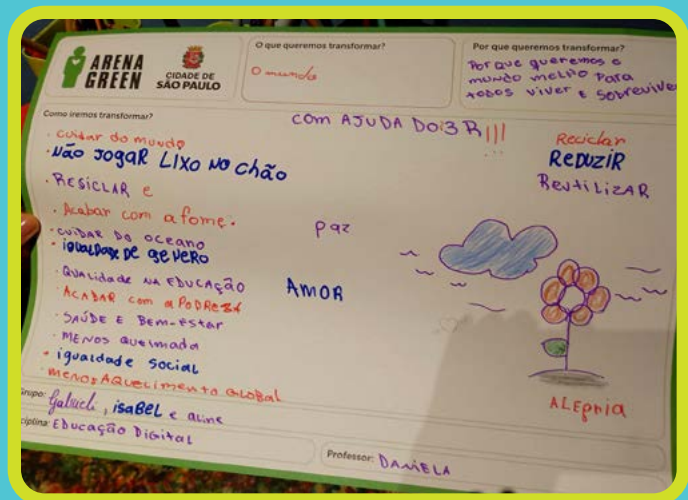 ARENA
GREEN
CIDADE DE
SÃO PAULO
O que queremos transformar?
O mundo
Por que queremos transformar?
Por que queremos o
mundo melho para
todos viver e sobrevive
Como iremos transformar?
com AJUDA Doi3 R!!!
...
Reciclar
REDUZIR
ReutiLizAR
· cuidar do mundo
· Não JOGAR LIXO NO chão
· RESICLAR e
· Acabar com a fome.
· CUIDAR DO OCEANO
· iGUALDADE DE GENERO
· QUALidade NA EDUCAÇÃO
· ACABAR com a PoBREZA
· SAÚDE E BEM-Estar
· MENOS Queimada
· igualdade social
· menos AQUELimento GLOBAL
paz
AMOR
ALEgria
Grupo: Gabrieli, isaBEL e aline
ciplina: EDucação Digital
Professor: DANiELA